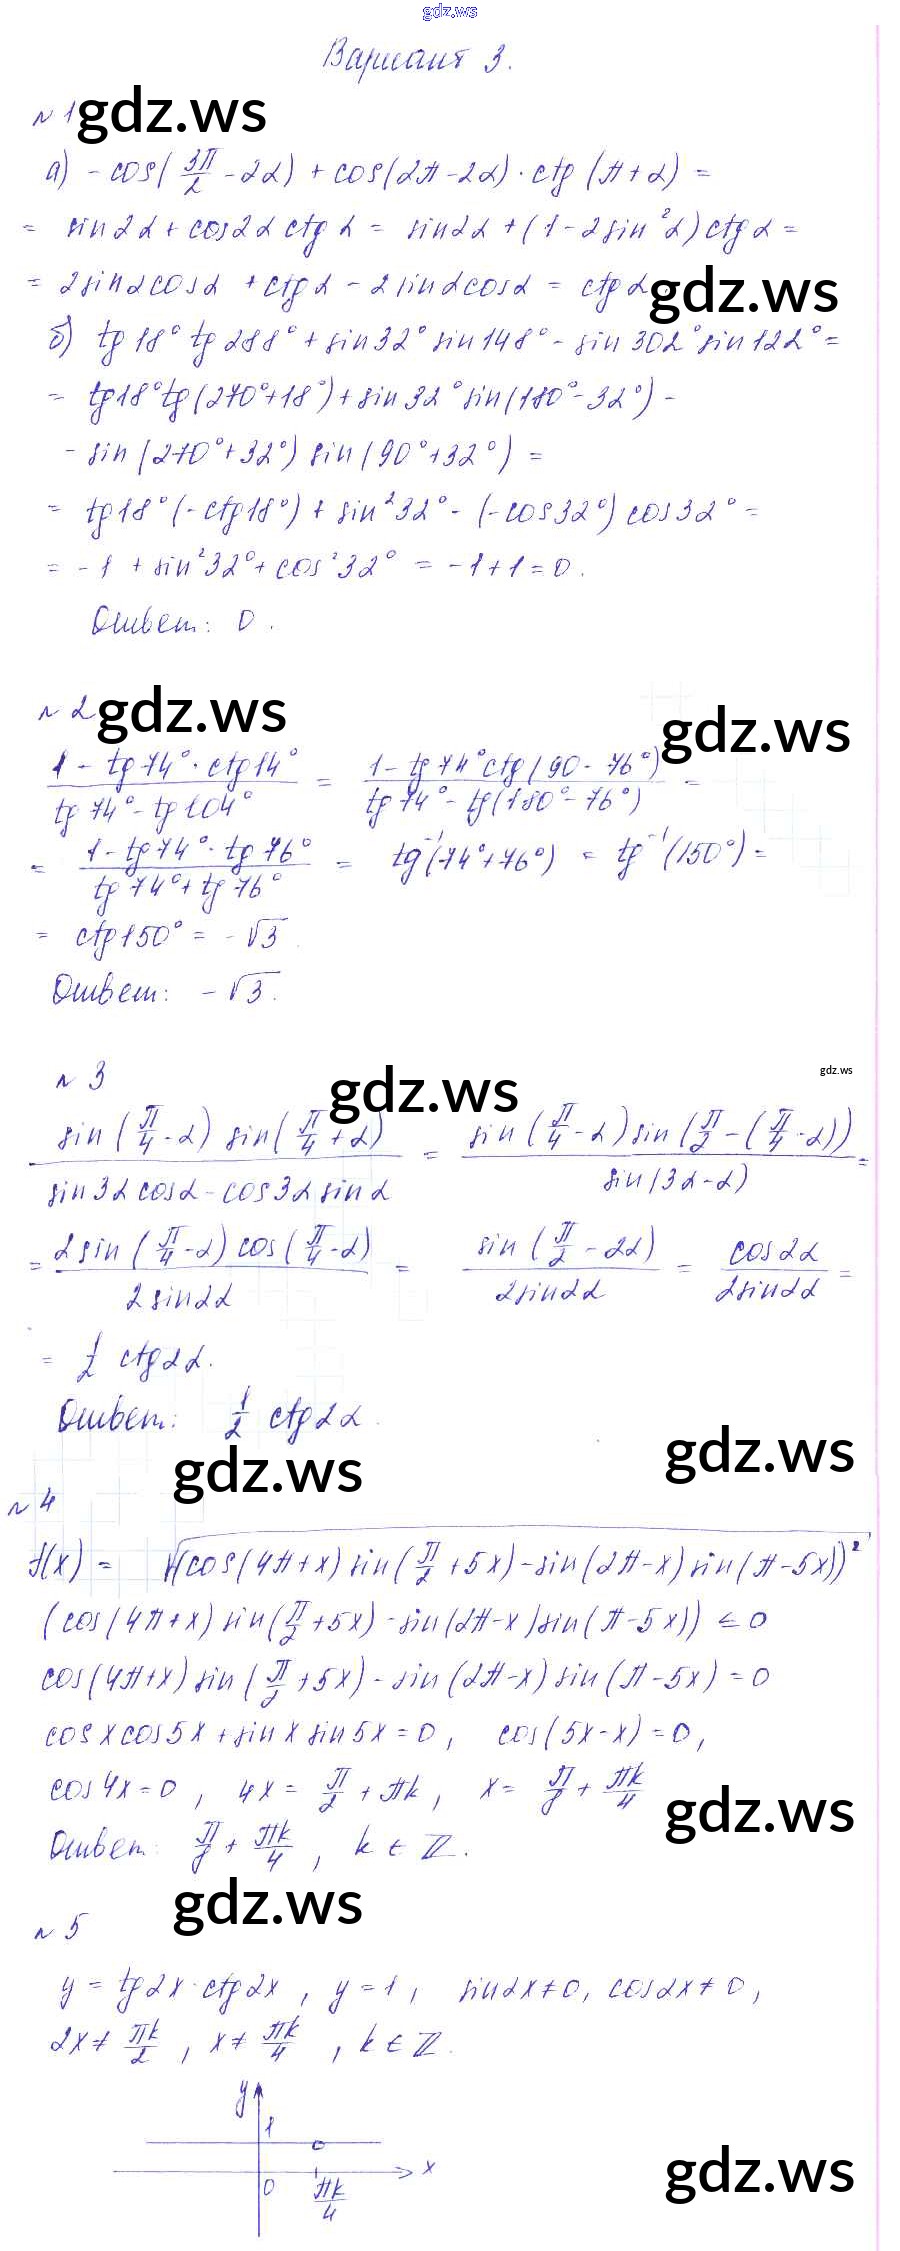 gdz.ws
Вариант 3.
№ 1 gdz.ws
а) - cos(3π/2 - 2α) + cos(2π - 2α) · ctg(π + α) =
= sin2α + cos2α ctgα = sin2α + (1 - 2sin²α)ctgα =
= 2sinαcosα + ctgα - 2sinαcosα = ctgα. gdz.ws
б) tg18° tg288° + sin32° sin148° - sin302° sin122° =
= tg18° tg(270° + 18°) + sin32° sin(180° - 32°) -
- sin(270° + 32°) sin(90° + 32°) =
= tg18°(-ctg18°) + sin²32° - (-cos32°) cos32° =
= -1 + sin²32° + cos²32° = -1 + 1 = 0.
Ответ: 0.
№ 2 gdz.ws gdz.ws
(1 - tg74° · ctg14°)/(tg74° - tg104°) = (1 - tg74° ctg(90 - 76°))/(tg74° - tg(180° - 76°)) =
= (1 - tg74° · tg76°)/(tg74° + tg76°) = tg⁻¹(74° + 76°) = tg⁻¹(150°) =
= ctg150° = -√3.
Ответ: -√3.
№ 3 gdz.ws gdz.ws
(sin(π/4 - α) sin(π/4 + α))/(sin3α cosα - cos3α sinα) = (sin(π/4 - α) sin(π/2 - (π/4 - α)))/(sin(3α - α)) =
= (2sin(π/4 - α) cos(π/4 - α))/(2sin2α) = (sin(π/2 - 2α))/(2sin2α) = (cos2α)/(2sin2α) =
= 1/2 ctg2α.
Ответ: 1/2 ctg2α.
gdz.ws gdz.ws
№ 4
f(x) = √(-(cos(4π + x) sin(π/2 + 5x) - sin(2π - x) sin(π - 5x))²)
(cos(4π + x) sin(π/2 + 5x) - sin(2π - x) sin(π - 5x)) ≤ 0
cos(4π + x) sin(π/2 + 5x) - sin(2π - x) sin(π - 5x) = 0
cos x cos5x + sin x sin5x = 0, cos(5x - x) = 0,
cos4x = 0, 4x = π/2 + πk, x = π/8 + πk/4
gdz.ws
Ответ: π/8 + πk/4, k ∈ Z.
gdz.ws
№ 5
y = tg2x · ctg2x, y = 1, sin2x ≠ 0, cos2x ≠ 0,
2x ≠ πk/2, x ≠ πk/4, k ∈ Z.
y
1
x
0 πk/4
gdz.ws